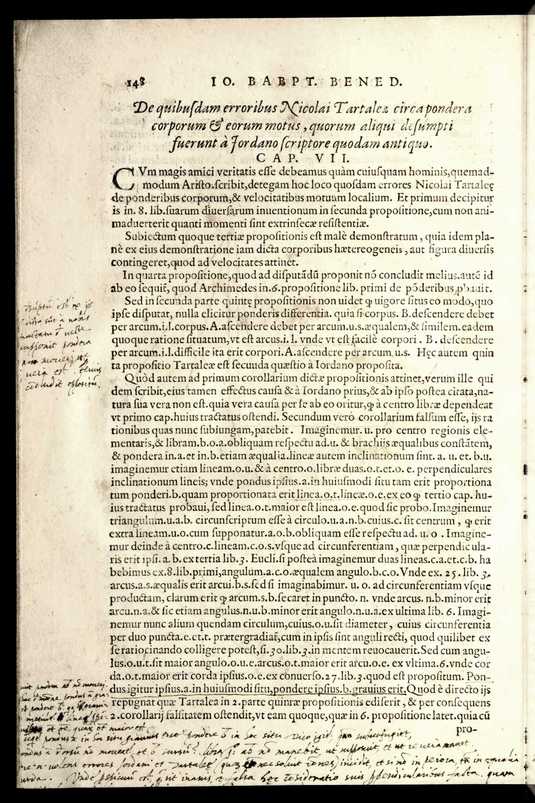 148 IO. BABPT. BENED.
De quibusdam erroribus Nicolai Tartaleæ circa pondera
corporum & eorum motus, quorum aliqui desumpti
fuerunt à Jordano scriptore quodam antiquo.
CAP. VII.
CVm magis amici veritatis esse debeamus quàm cuiusquam hominis, quemad-
modum Aristo. scribit, detegam hoc loco quosdam errores Nicolai Tartaleę
de ponderibus corporum, & velocitatibus motuum localium. Et primum decipitur
is in. 8. lib. suarum diuersarum inuentionum in secunda propositione, cum non ani-
maduerterit quanti momenti sint extrinsecæ resistentiæ.
Subiectum quoque tertiæ propositionis est malè demonstratum, quia idem pla-
nè ex eius demonstratione iam dicta corporibus hætereogeneis, aut figura diuersis
contingeret, quoad ad velocitates attinet.
In quarta propositione, quod ad disputādū proponit nō concludit melius. autē id
ab eo sequiť, quod Archimedes in. 6. propositione lib. primi de pōderibus, ꝓbauit.
Sed in secunda parte quintę propositionis non uidet ꝙ uigore situs eo modo, quo
ipse disputat, nulla elicitur ponderis differentia. quia si corpus. B. descendere debet
per arcum. i.l. corpus. A. ascendere debet per arcum. u.s. æqualem, & similem. eadem
quoque ratione situatum, vt est arcus. i.l. vnde vt est facilè corpori. B. descendere
per arcum. i.l. difficile ita erit corpori. A. ascendere per arcum. u.s. Hęc autem quin
ta propositio Tartaleæ est secunda quæstio à Iordano proposita.
Quòd autem ad primum corollarium dictæ propositionis attinet, verum ille qui
dem scribit, eius tamen effectus causa & à Iordano prius, & ab ipso postea citata, na-
tura sua vera non est. quia vera causa per se ab eo oritur, ꝙ à centro libræ dependeat
vt primo cap. huius tractatus ostendi. Secundum verò corollarium falsum esse, ijs ra
tionibus quas nunc subiungam, patebit. Imaginemur. u. pro centro regionis ele-
mentaris, & libram. b.o.a. obliquam respectu ad. u. & brachijs æqualibus constātem,
& pondera in. a. et in. b. etiam æqualia. lineæ autem inclinationum sint. a. u. et. b. u.
imaginemur etiam lineam. o.u. & à centro. o. libræ duas. o.t. et. o. e. perpendiculares
inclinationum lineis; vnde pondus ipsius. a. in huiusmodi situ tam erit proportiona
tum ponderi. b. quam proportionata erit linea. o.t. lineæ. o.e. ex eo ꝙ tertio cap. hu-
ius tractatus probaui, sed linea. o.t. maior est linea. o.e. quod sic probo. Imaginemur
triangulum. u.a.b. circunscriptum esse à circulo. u.a.n.b. cuius. c. sit centrum, ꝙ erit
extra lineam. u.o. cum supponatur. a.o.b. obliquam esse respectu ad. u.o. Imagine-
mur deinde à centro. c. lineam. c.o.s. vsque ad circunferentiam, quæ perpendicula-
ris erit ipsi. a. b. ex tertia lib. 3. Eucli. si posteà imaginemur duas lineas. c.a. et. c.b. ha
bebimus ex. 8. lib. primi, angulum. a.c.o. æqualem angulo. b.c.o. Vnde ex. 25. lib. 3.
arcus. a.s. æqualis erit arcui. b.s. sed si imaginabimur. u.o. ad circunferentiam vsque
productam, clarum erit ꝙ arcum. s.b. secaret in puncto. n. vnde arcus. n.b. minor erit
arcu. n.a. & sic etiam angulus. n.u.b. minor erit angulo. n.u.a. ex ultima lib. 6. Imagi-
nemur nunc alium quendam circulum, cuius. o.u. sit diameter, cuius circunferentia
per duo puncta. e. et. t. prætergradiať, cum in ipsis sint anguli recti, quod quilibet ex
se ratiocinando colligere potest, si. 30. lib. 3. in mentem reuocauerit. Sed cum angu-
lus. o.u.t. sit maior angulo. o.u.e. arcus. o.t. maior erit arcu. o.e. ex vltima. 6. vnde cor
da. o.t. maior erit corda ipsius. o.e. ex conuerso. 27. lib. 3. quod est propositum. Pon-
dus igitur ipsius. a. in huiusmodi situ, pondere ipsius. b. grauius erit. Quod è directo ijs
repugnat quæ Tartalea in 2. parte quintæ propositionis ediserit, & per consequens
2. corollarij falsitatem ostendit, vt eam quoque, quæ in 6. propositione latet. quia cū
pro-